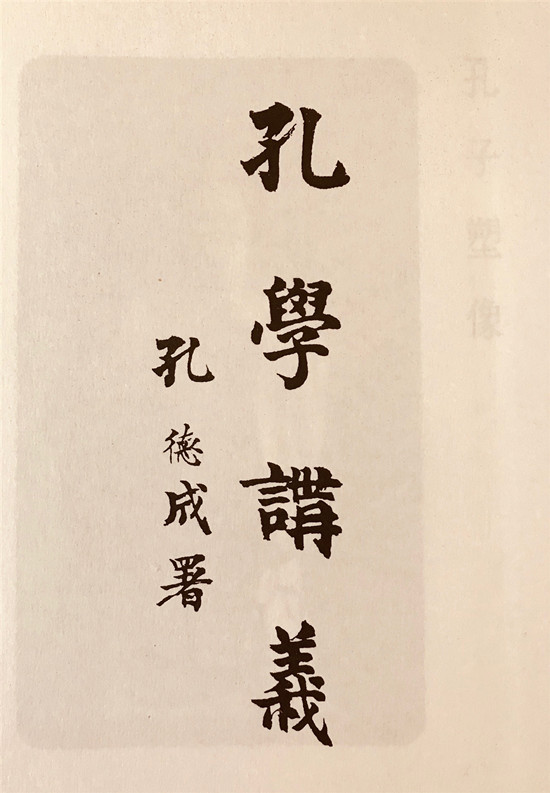 孔學講義
孔德成署
孔子塑像